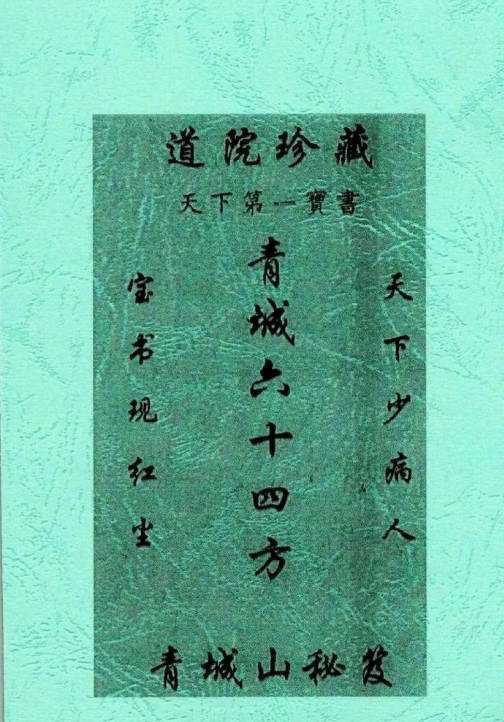 道院珍藏
天下第一寶書
天下少病人
青城六十四方
宝书现红尘
青城山秘笈